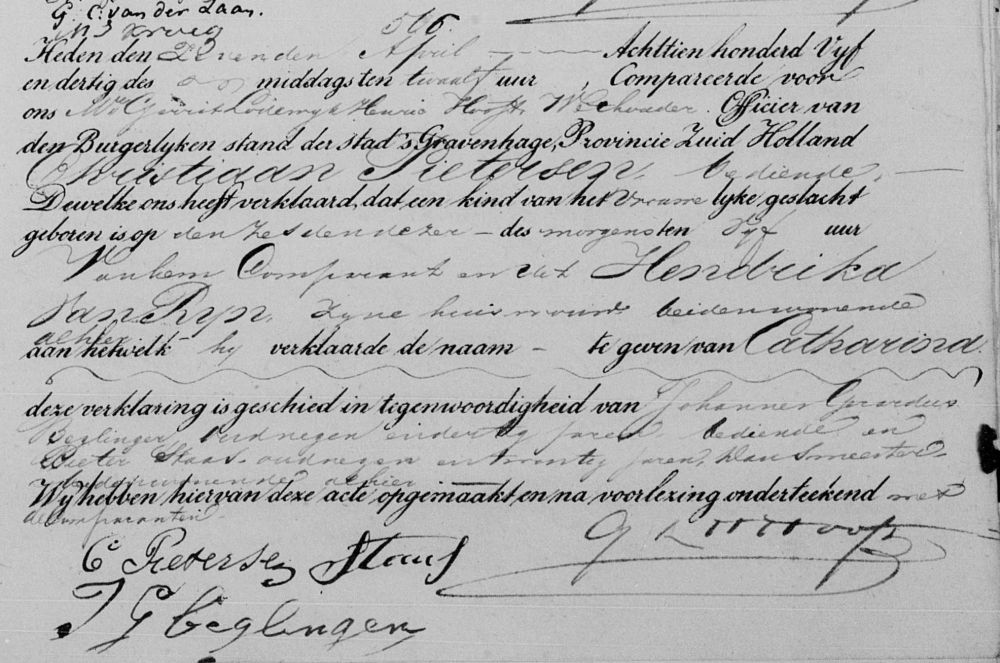 G. C. van der Laan.
566.
Heden den Zevenden April Achttien honderd Vyf
en dertig des middags ten twaalf uur Compareerde voor
ons Mr Gerrit Lodewyk Henric Hooft, Wethouder. Officier van
den Burgerlyken stand der stad 's Gravenhage, Provincie Zuid Holland
Christiaan Pietersen, bediende,
Dewelke ons heeft verklaard, dat een kind van het Vrouwe lyke geslacht
geboren is op den zesden dezer des morgens ten Vyf uur
Van hem Comparant en uit Hendrika
Van Ryn, zyne huisvrouw beiden wonende
alhier
aan hetwelk hy verklaarde de naam te geven van Catharina.
deze verklaring is geschied in tegenwoordigheid van Johannes Gerardus
Beglinger, oud negen en dertig jaren, bediende en
Pieter Staas, oud negen en twintig jaren, dansmeester
beide wonende alhier
Wy hebben hiervan deze acte opgemaakt, en na voorlezing onderteekend met
de Comparanten.
C Pietersen Staas G L H Hooft
J G Beglinger